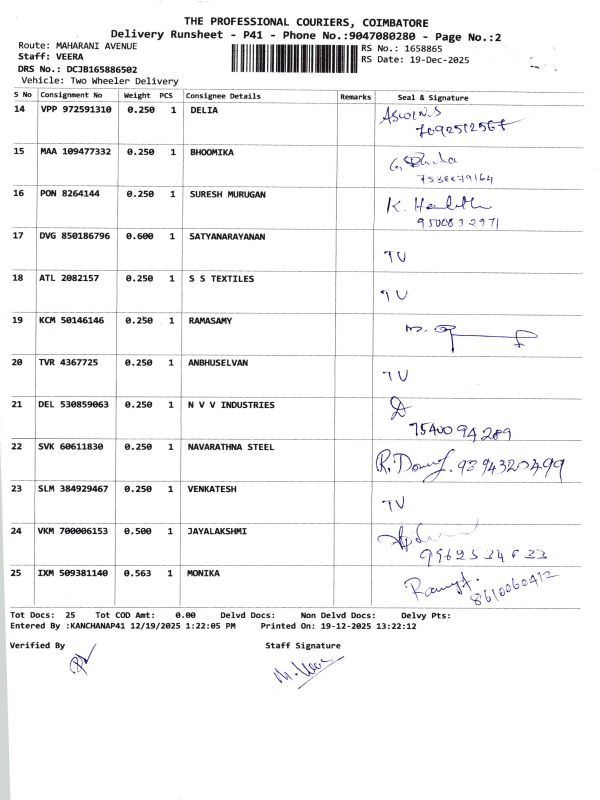 THE PROFESSIONAL COURIERS, COIMBATORE
Delivery Runsheet - P41 - Phone No.:9047080280 - Page No.:2
Route: MAHARANI AVENUE
RS No.: 1658865
Staff: VEERA
RS Date: 19-Dec-2025
DRS No.: DCJB165886502
Vehicle: Two Wheeler Delivery
S No Consignment No Weight PCS Consignee Details Remarks Seal & Signature
14 VPP 972591310 0.250 1 DELIA
15 MAA 109477332 0.250 1 BHOOMIKA
16 PON 8264144 0.250 1 SURESH MURUGAN K.
17 DVG 850186796 0.600 1 SATYANARAYANAN TV
18 ATL 2082157 0.250 1 S S TEXTILES TV
19 KCM 50146146 0.250 1 RAMASAMY
20 TVR 4367725 0.250 1 ANBHUSELVAN TV
21 DEL 530859063 0.250 1 N V V INDUSTRIES
7540094289
22 SVK 60611830 0.250 1 NAVARATHNA STEEL
23 SLM 384929467 0.250 1 VENKATESH TV
24 VKM 700006153 0.500 1 JAYALAKSHMI
25 IXM 509381140 0.563 1 MONIKA
8610060412
Tot Docs: 25 Tot COD Amt: 0.00 Delvd Docs: Non Delvd Docs: Delvy Pts:
Entered By :KANCHANAP41 12/19/2025 1:22:05 PM Printed On: 19-12-2025 13:22:12
Verified By Staff Signature